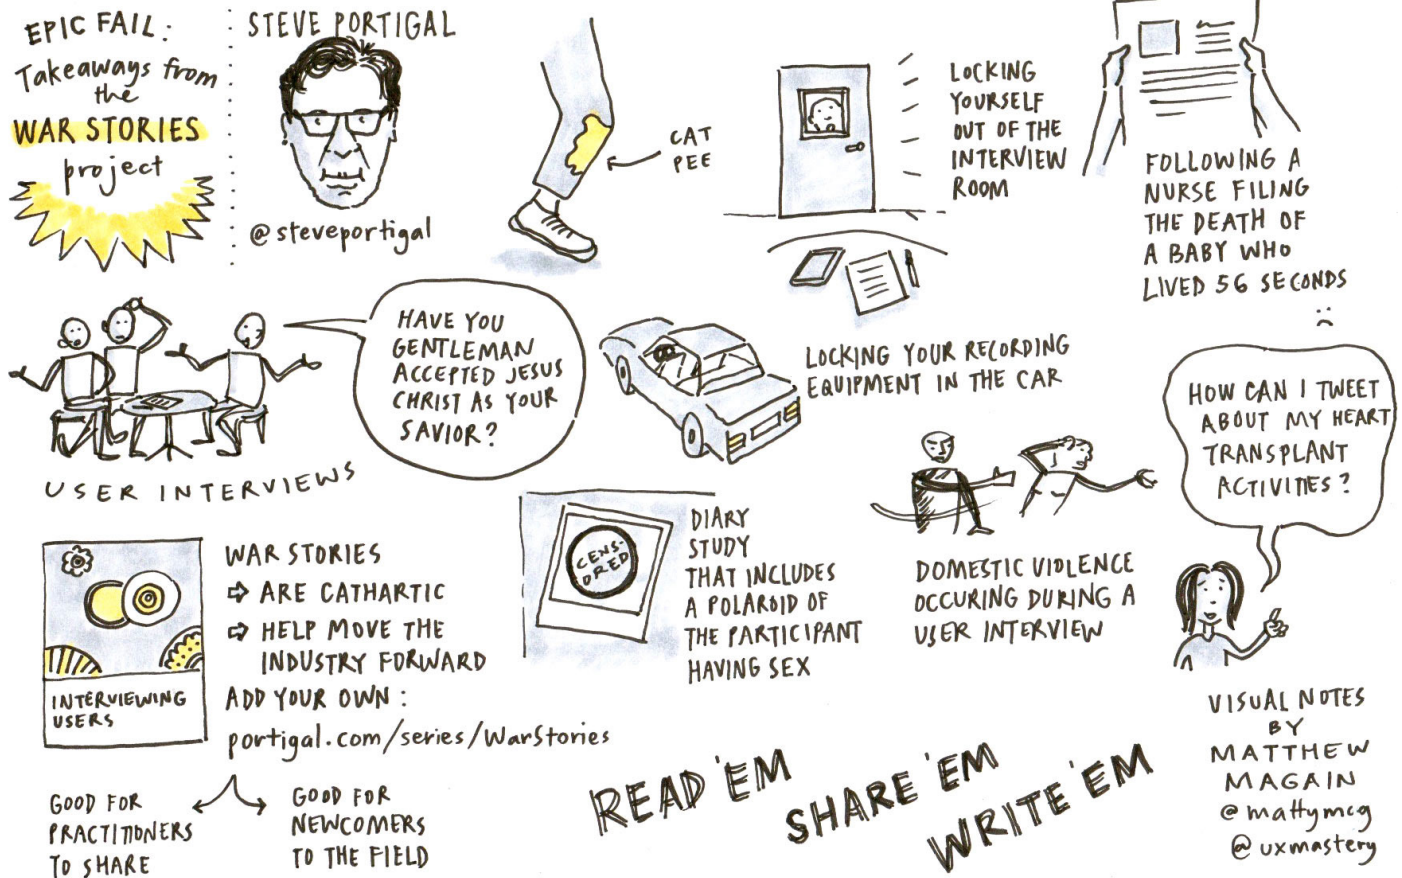 EPIC FAIL:
Takeaways from
the
WAR STORIES
project
STEVE PORTIGAL
@steveportigal
CAT
PEE
LOCKING
YOURSELF
OUT OF THE
INTERVIEW
ROOM
FOLLOWING A
NURSE FILING
THE DEATH OF
A BABY WHO
LIVED 56 SECONDS
:(
HAVE YOU
GENTLEMAN
ACCEPTED JESUS
CHRIST AS YOUR
SAVIOR?
USER INTERVIEWS
LOCKING YOUR RECORDING
EQUIPMENT IN THE CAR
HOW CAN I TWEET
ABOUT MY HEART
TRANSPLANT
ACTIVITIES?
INTERVIEWING
USERS
WAR STORIES
⇨ ARE CATHARTIC
⇨ HELP MOVE THE
INDUSTRY FORWARD
ADD YOUR OWN:
portigal.com/series/WarStories
GOOD FOR
PRACTITIONERS
TO SHARE
GOOD FOR
NEWCOMERS
TO THE FIELD
CENS-
ORED
DIARY
STUDY
THAT INCLUDES
A POLAROID OF
THE PARTICIPANT
HAVING SEX
DOMESTIC VIOLENCE
OCCURING DURING A
USER INTERVIEW
READ 'EM
SHARE 'EM
WRITE 'EM
VISUAL NOTES
BY
MATTHEW
MAGAIN
@mattymcg
@uxmastery